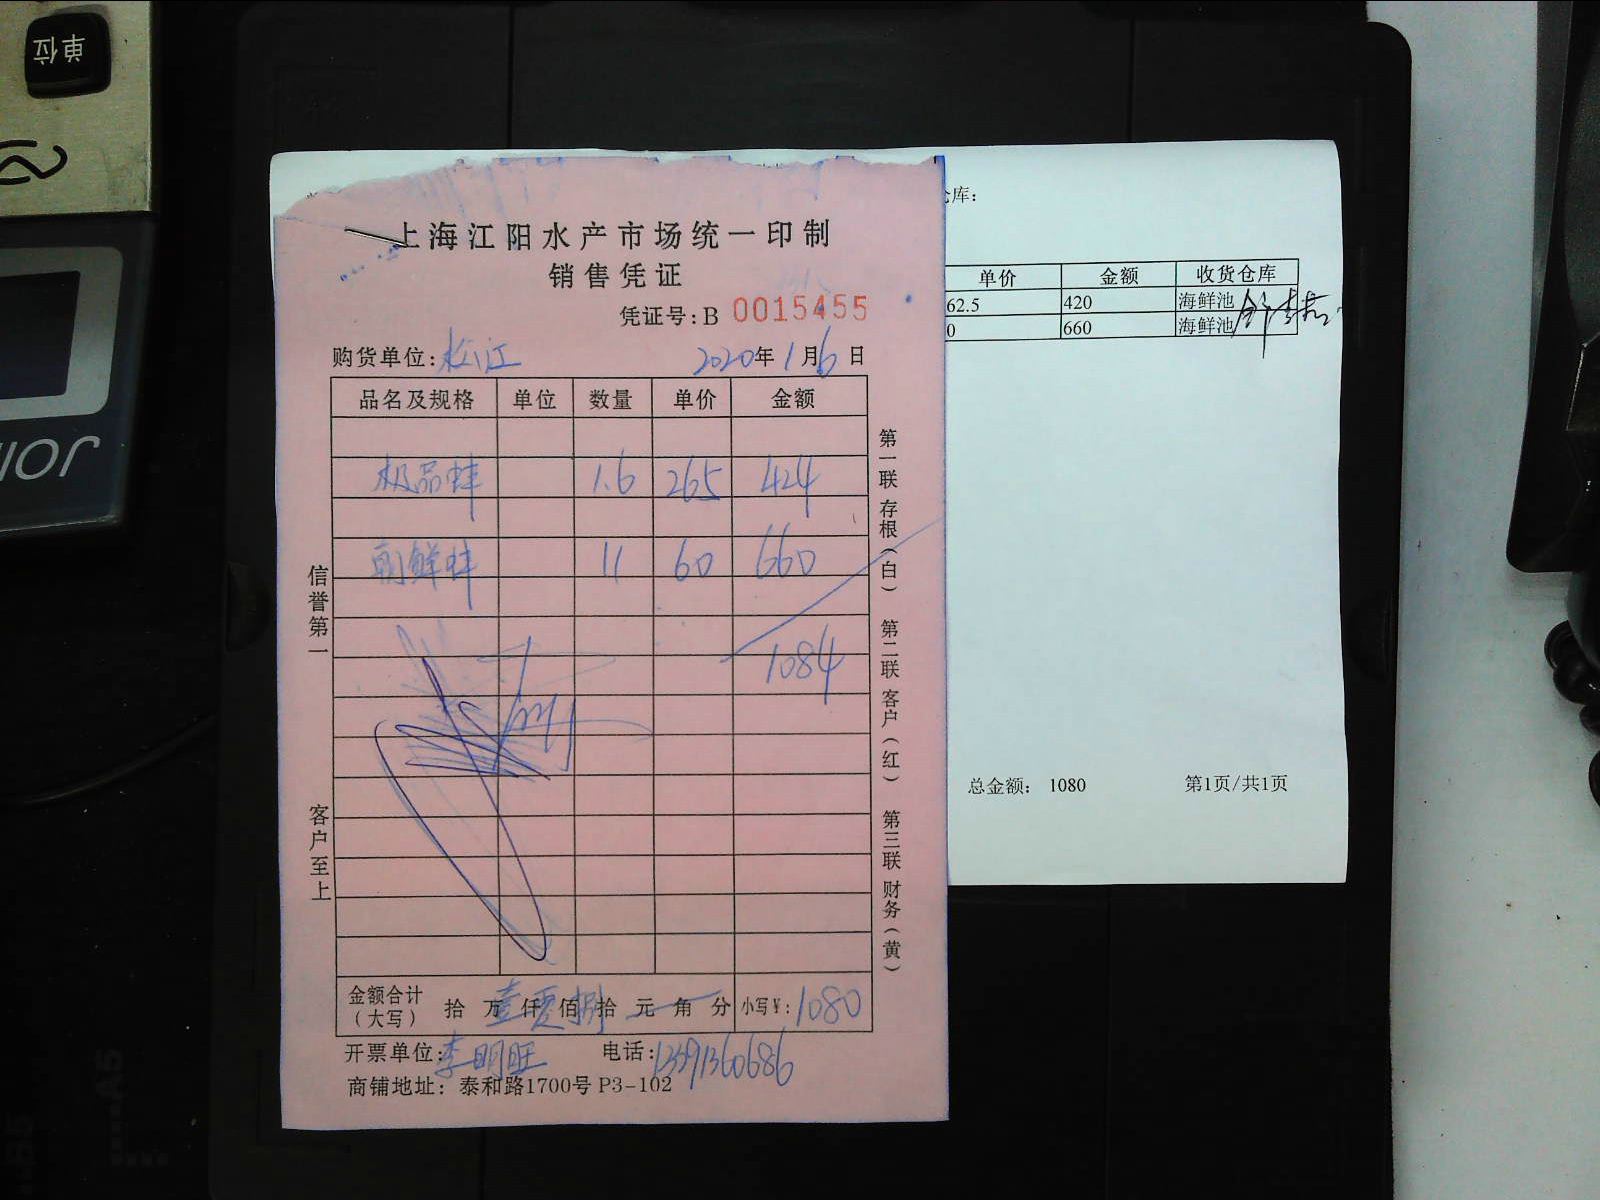 单位
上海江阳水产市场统一印制
销售凭证
凭证号：B 0015455
购货单位：松江 2020年1月6日
品名及规格 单位 数量 单价 金额
极品蚌 1.6 265 424
朝鲜蚌 11 60 660
1084
金额合计（大写） 拾万壹仟零佰捌拾元角分 小写¥：1080
开票单位：李明旺 电话：13391360686
商铺地址：泰和路1700号 P3-102
信誉第一
客户至上
第一联 存根（白） 第二联 客户（红） 第三联 财务（黄）
仓库：
单价 金额 收货仓库
62.5 420 海鲜池
0 660 海鲜池
总金额： 1080 第1页/共1页